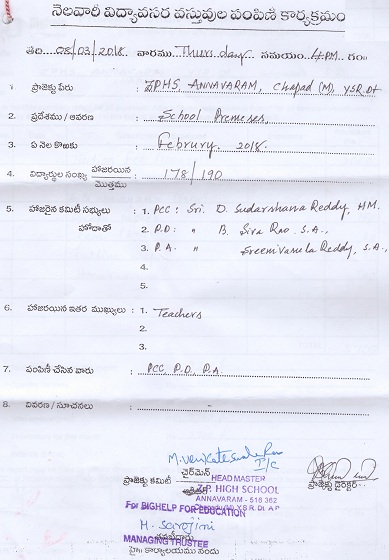 నెలవారీ విద్యావసర వస్తువుల పంపిణి కార్యక్రమం
తేది 08/03/2018. వారము Thursday సమయం 4 PM. గం॥
1 ప్రాజెక్టు పేరు : ZPHS, ANNAVARAM, Chapad (M), YSR Dt
2. ప్రదేశము / ఆవరణ : School Premeses,
3. ఏ నెల కొఱకు : Februry. 2018.
4. విద్యార్థుల సంఖ్య హాజరయిన / మొత్తము : 178/190
5. హాజరైన కమిటీ సభ్యులు : 1. PCC: Sri. D. Sudarshana Reddy, HM.
హోదాతో 2. P.D: " B. Siva Rao. S.A.,
3. P.A. " Sreenivasula Reddy, S.A.,
4.
5.
6. హాజరయిన ఇతర ముఖ్యులు : 1. Teachers
2.
3.
7. పంపిణీ చేసిన వారు : PCC, P.D, P.A
8. వివరణ / సూచనలు :
I/C
ప్రాజెక్టు కమిటీ చైర్మెన్
HEAD MASTER
Z.P. HIGH SCHOOL
ANNAVARAM - 516 362
Y.S.R. Dt. A.P
ప్రాజెక్టు డైరెక్టర్
For BIGHELP FOR EDUCATION
H. Sarojini
MANAGING TRUSTEE
కార్యాలయము నందు